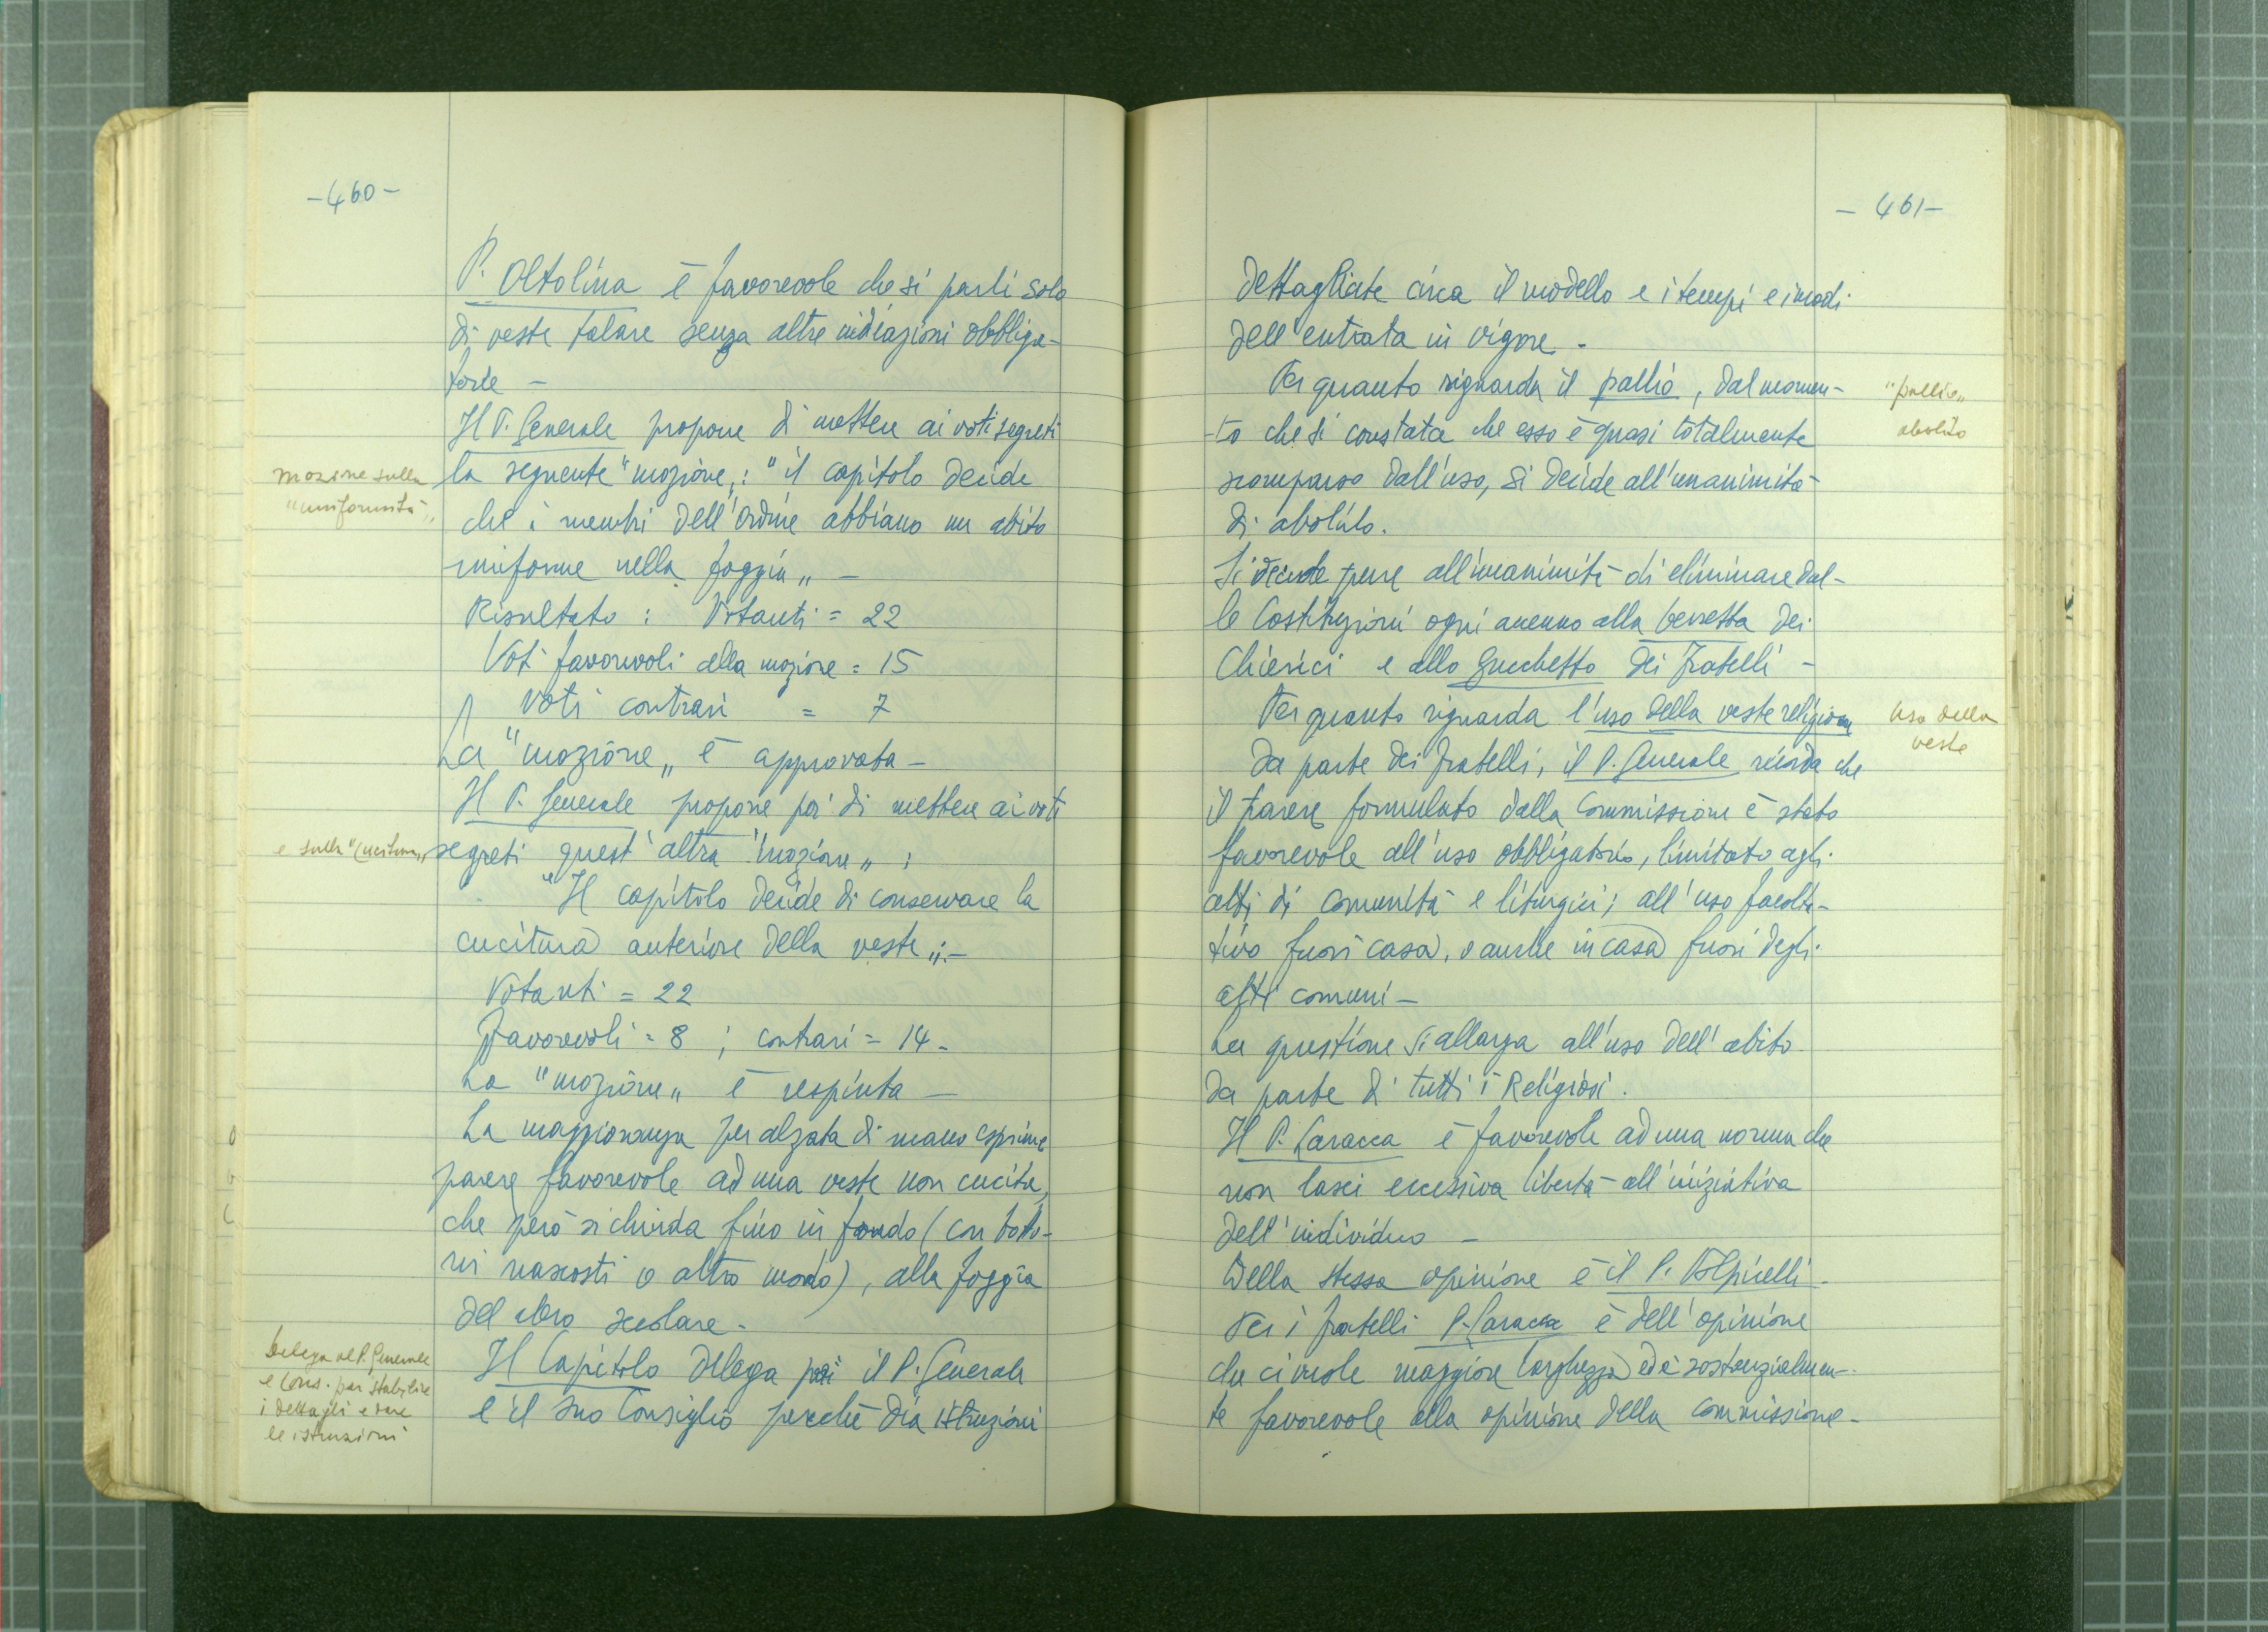 -460-
P. Oltolina è favorevole che si parli solo
di veste talare senza altre indicazioni obbliga-
torie -
Il P. Generale propone di mettere ai voti segreti
mozione sulla
"uniformità"
la seguente "mozione„: "il capitolo decide
che i membri dell'Ordine abbiano un abito
uniforme nella foggia„ -
Risultato: Votanti = 22
Voti favorevoli alla mozione = 15
Voti contrari = 7
La "mozione„ è approvata -
Il P. Generale propone poi di mettere ai voti
e sulla "cucitura„
segreti quest'altra "mozione„:
"Il capitolo decide di conservare la
cucitura anteriore della veste„: -
Votanti = 22
Favorevoli = 8 ; contrari = 14 -
La "mozione„ è respinta -
La maggioranza per alzata di mano esprime
parere favorevole ad una veste non cucita,
che però si chiuda fino in fondo (con botto-
ni nascosti o altro modo), alla foggia
del clero secolare -
Delega al P. Generale
e Cons. per stabilire
i dettagli e dare
le istruzioni
Il Capitolo delega poi il P. Generale
e il suo Consiglio perché dia istruzioni
- 461 -
dettagliate circa il modello e i tempi e i modi
dell'entrata in vigore. -
Per quanto riguarda il pallio, dal momen-
"pallio„
abolito
-to che si constata che esso è quasi totalmente
scomparso dall'uso, si decide all'unanimità
di abolirlo.
Si decide pure all'unanimità di eliminare dal-
le Costituzioni ogni accenno alla berretta dei
Chierici e allo zucchetto dei Fratelli -
Per quanto riguarda l'uso della veste religiosa
uso della
veste
da parte dei fratelli, il P. Generale ricorda che
il parere formulato dalla Commissione è stato
favorevole all'uso obbligatorio, limitato agli
atti di comunità e liturgici; all'uso facolta-
tivo fuori casa, o anche in casa fuori degli
atti comuni -
La questione si allarga all'uso dell'abito
da parte di tutti i Religiosi.
Il P. Caracca è favorevole ad una norma che
non lasci eccessiva libertà all'iniziativa
dell'individuo -
Della stessa opinione è il P. Volpicelli -
Per i fratelli P. Caracca è dell'opinione
che ci vuole maggiore larghezza ed è sostanzialmen-
te favorevole alla opinione della Commissione -